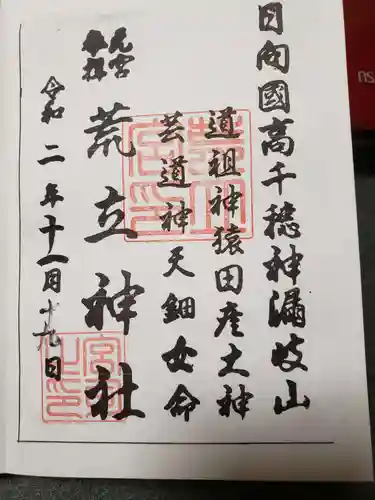 日向國高千穂神漏岐山
道祖神猿田彦土神
芸道神天鈿女命
元宮
参拝
荒立神社
令和二年十一月十九日